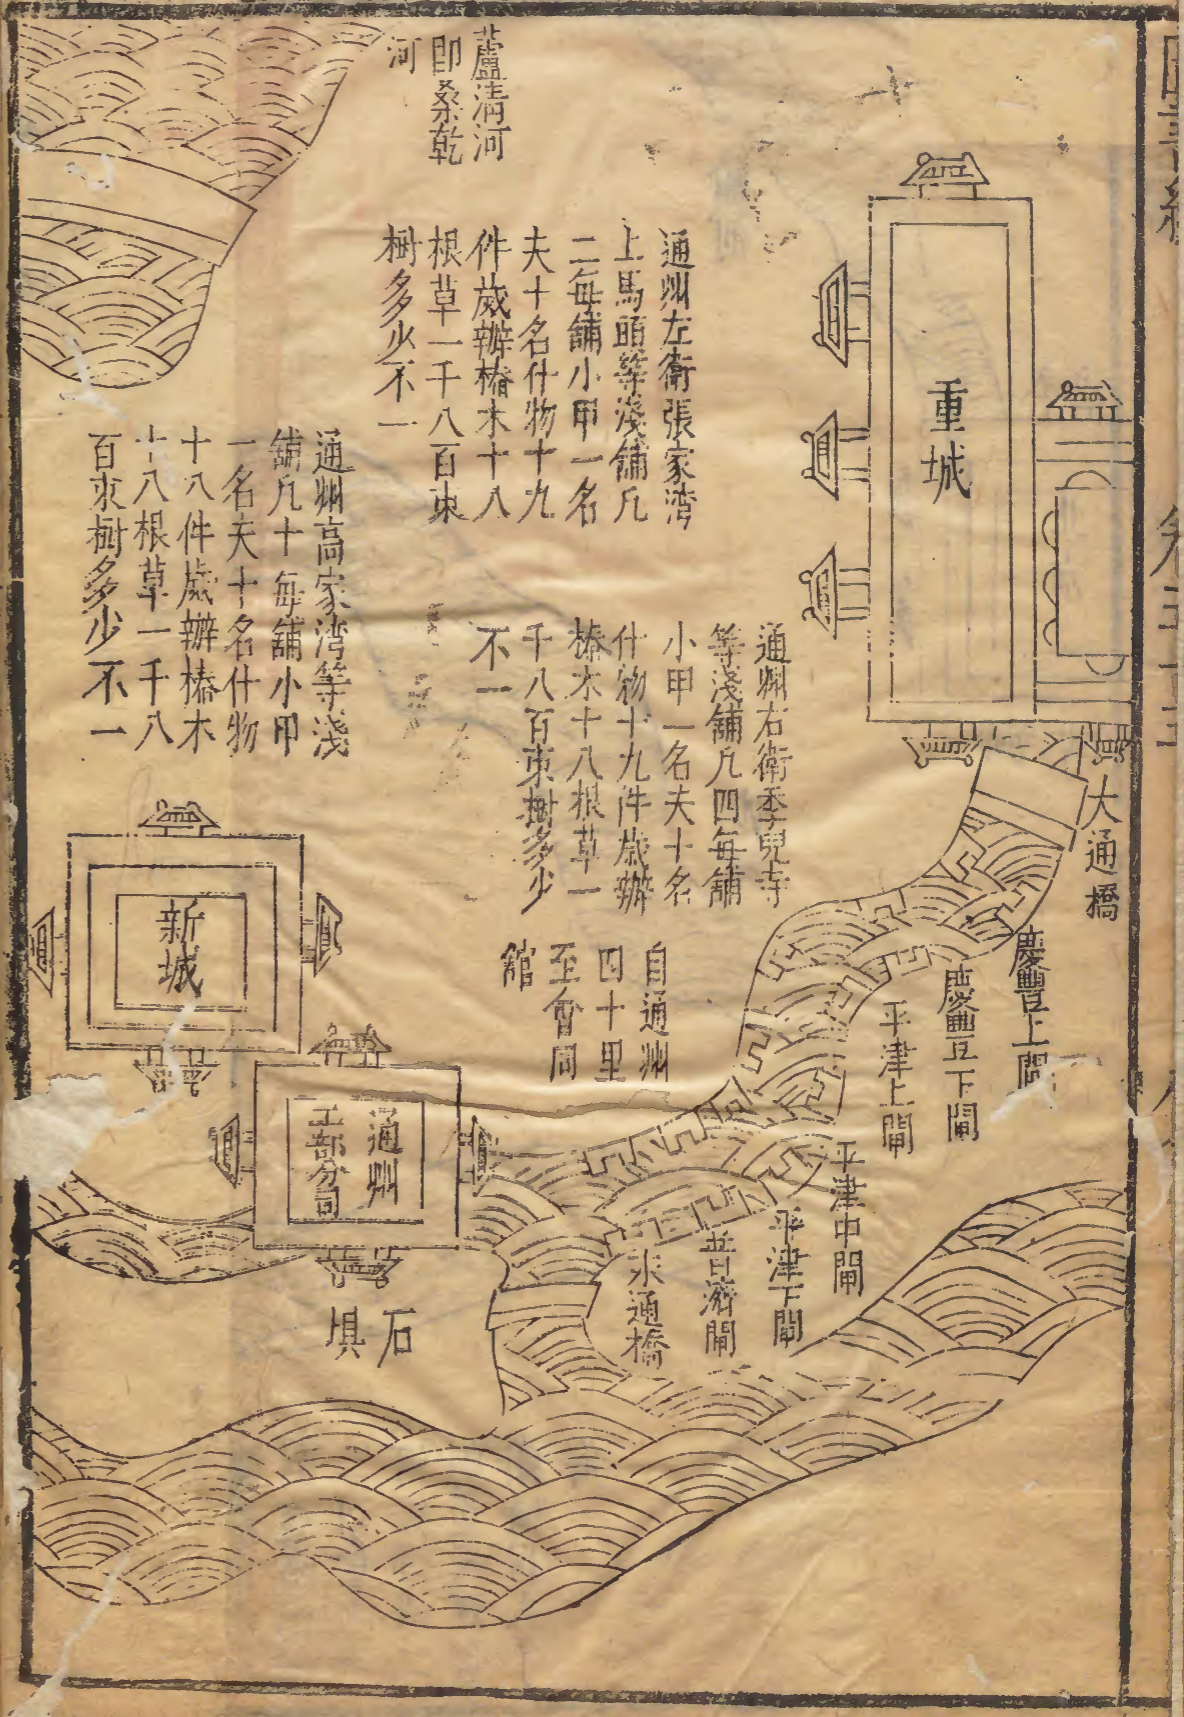 重城
大通橋
慶豐上閘
慶豐下閘
平津上閘
平津中閘
平津下閘
普濟閘
永通橋
通州右衛季兒寺
等淺舖凢四每舖
小甲一名夫十名
什物十九件歲辦
樁木十八根草一
千八百束樹多少
不一
自通州
四十里
至會同
舘
通州左衛張家湾
上馬頭等淺舖凢
二每舖小甲一名
夫十名什物十九
件歲辦樁木十八
根草一千八百束
樹多少不一
蘆溝河
即桑乾
河
通州高家湾等淺
舖凢十每舖小甲
一名夫十名什物
十八件歲辦樁木
十八根草一千八
百束樹多少不一
新城
通州
工部分司
石
埧